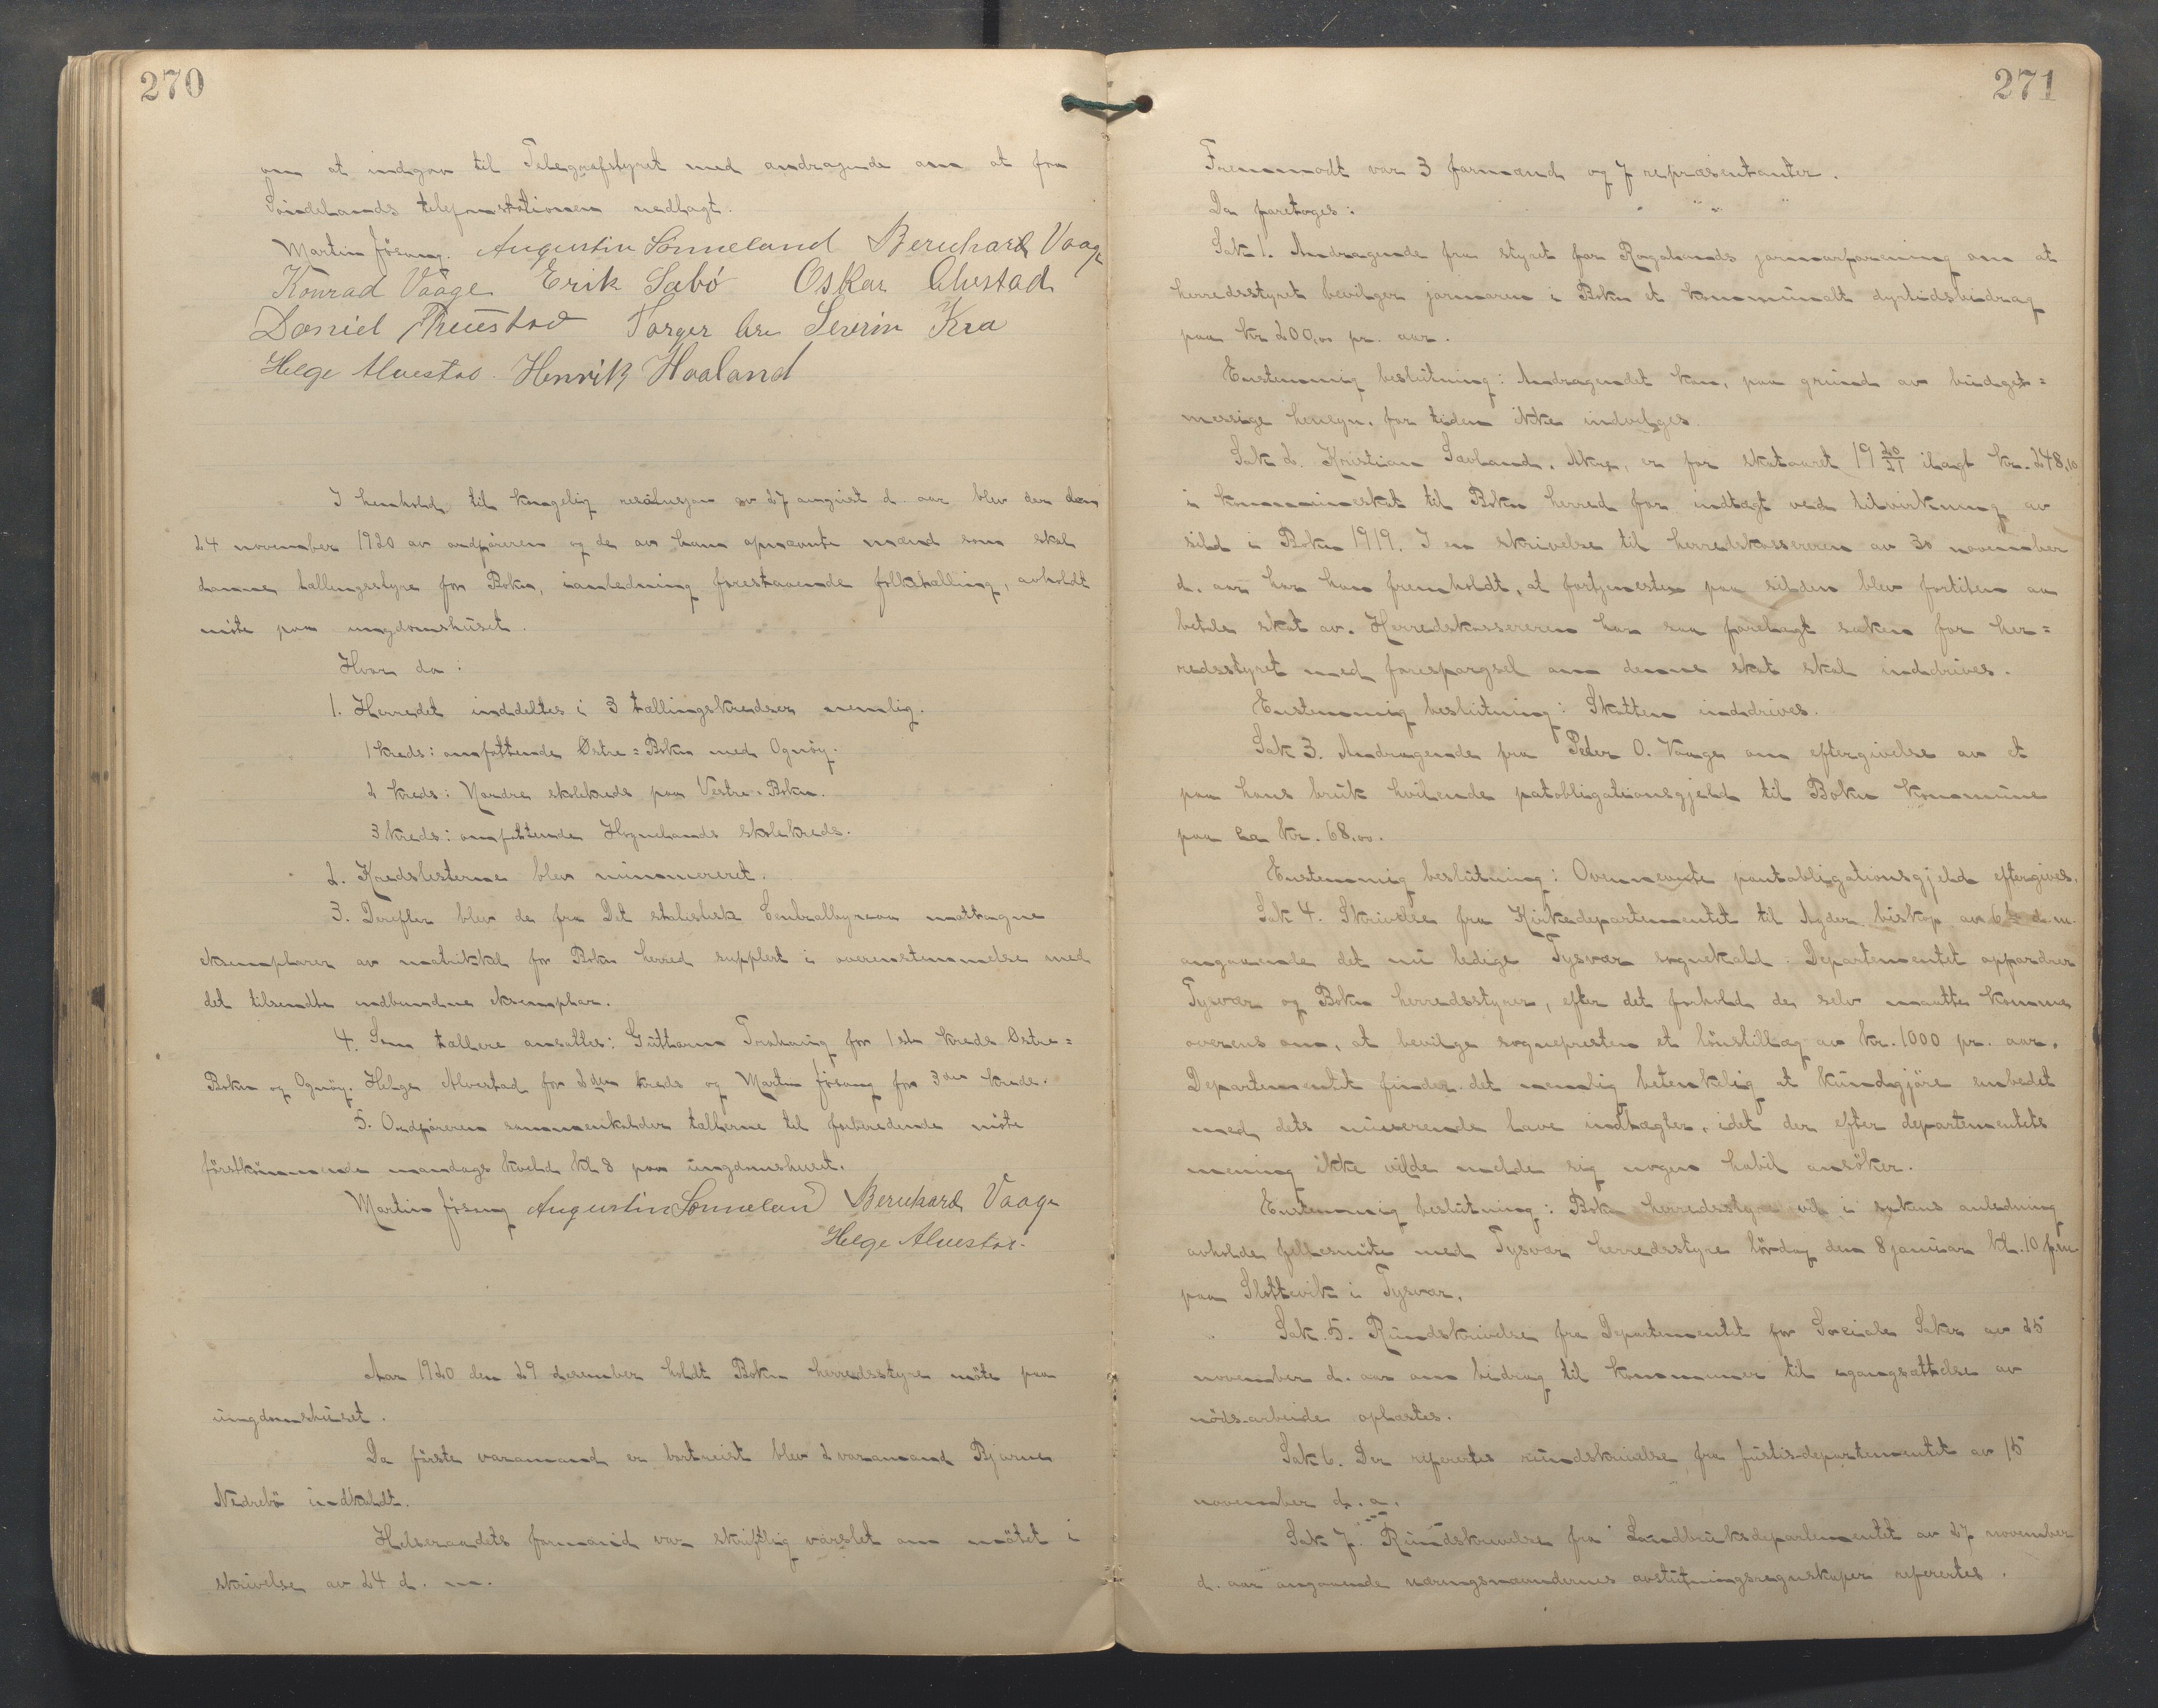 270
om at indgaa til Telegrafstyret med andragende om at faa
Søndelands telefonstationen nedlagt.
Martin Jøsang. Augustin Sønneland Bernhard Vaage
Konrad Vaage Erik Sæbö Oskar Alvestad
Daniel Torger Are Severin Kro
Helge Alvestad. Henrik Haaland
I henhold til kongelig resolusjon av 27 august d. aar blev der den
24 november 1920 av ordføreren og de av ham opnævnte mænd som skal
danne tællingsstyre for Bokn, i anledning forestaaende folketælling, avholdt
møte paa ungdomshuset.
Hvor da:
1. Herredet inddeltes i 3 tællingskredser nemlig.
1 kreds: omfattende Østre=Bokn med Ognøy.
2 kreds: Nordre skolekreds paa Vestre-Bokn.
3 kreds: omfattende Hognelands skolekreds.
2. Kredslisterne blev nummereret.
3. Derefter blev de fra Det statistisk Centralbyraa mottagne
eksemplarer av matrikkel for Bokn herred supplert i overenstemmelse med
det tilsendte indbundne eksemplar.
4. Som tællere ansattes: Guttorm for 1ste kreds Østre=
Bokn og Ognøy. Helge Alvestad for 2den kreds og Martin Jøsang for 3die kreds.
5. Ordføreren sammenkalder tællerne til forberedende møte
førstkommende mandags kveld kl 8 paa ungdomshuset.
Martin Jøsang Augustin Sønneland Bernhard Vaage
Helge Alvestad.
Aar 1920 den 29 desember holdt Bokn herredsstyre møte paa
ungdomshuset.
Da første varamand er bortreist blev 2 varamand Bjarne
Nedrebø indkaldt.
Helseraadets formand var skriftlig varslet om møtet i
skrivelse av 24 d. m.
271
Fremmødt var 3 formænd og 7 repræsentanter.
Da foretoges:
Sak 1. Andragende fra styret for Rogalands jormorforening om at
herredsstyret bevilger jormoren i Bokn et kommunalt dyrtidsbidrag
paa kr 200,00 pr. aar.
Enstemmig beslutning: Andragendet kan, paa grund av budget=
messige hensyn, for tiden ikke indvilges.
Sak 2. Kristian Sævland, Akre, er for skataaret 19 20/21 ilagt kr. 248,10
i kommuneskat til Bokn herred for indtægt ved tilvirkning av
sild i Bokn 1919. I en skrivelse til herredskassereren av 30 november
d. aar har han fremholdt, at fortjenesten paa silden blev for liten aa
betale skat av. Herredskassereren har saa forelagt saken for her=
redsstyret med forespørgsel om denne skat skal inddrives.
Enstemmig beslutning: Skatten inddrives.
Sak 3. Andragende fra Peder O. Vaage om eftergivelse av et
paa hans bruk hvilende patobligationsgjeld til Bokn kommune
paa ca kr. 68,00.
Enstemmig beslutning: Ovennevnte pantobligationsgjeld eftergives.
Sak 4. Skrivelse fra Kirkedepartementet til Agder biskop av 6te d. m.
angaaende det nu ledige Tysvær sognekald. Departementet oppfordrer
Tysvær og Bokn herredsstyrer, efter det forhold de selv maatte komme
overens om, at bevilge sognepresten et lønstillæg av kr. 1000 pr. aar.
Departementet finder det nemlig betenkelig at kundgjøre embedet
med dets nuværende lave indtægter, idet der efter departementets
mening ikke vilde melde sig nogen habil ansøker.
Enstemmig beslutning: Bokn herredsstyre vil i sakens anledning
avholde fellesmøte med Tysvær herredsstyre lørdag den 8 januar kl. 10 fm
paa Slottevik i Tysvær.
Sak 5. Rundskrivelse fra Departementet for Sociale Saker av 25
november d. aar om bidrag til kommuner til igangsættelse av
nøds-arbeide oplæstes.
Sak 6. Der refertes rundskrivelse fra Justisdepartementet av 15
november d. a.
Sak 7. Rundskrivelse fra Landbruksdepartementet av 27 november
d. aar angaaende næringsnævndernes avslutningsregnskaper refertes.